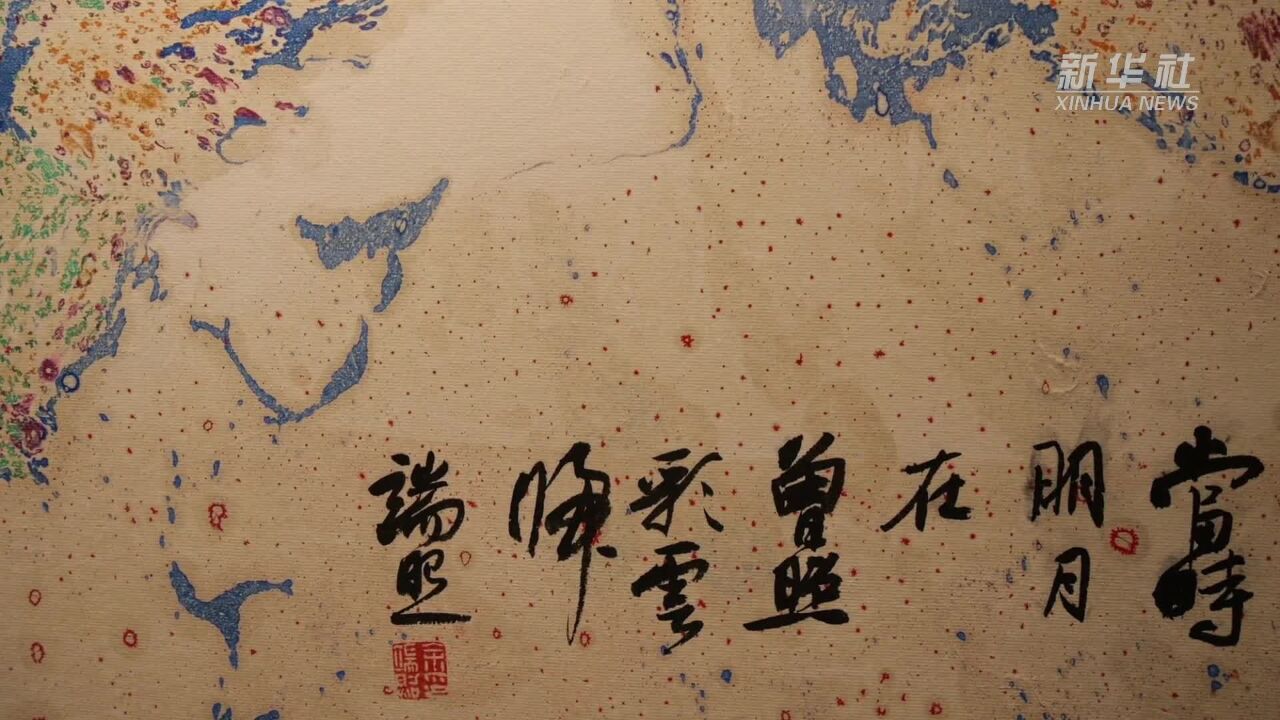 新华社
XINHUA NEWS
當時
明月
在
曾照
彩雲
歸
端照